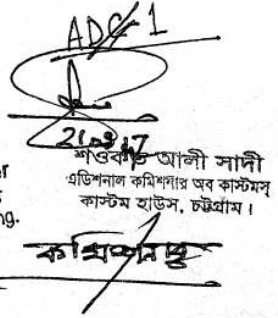 ADC-1
21.03.17
শওকত আলী সাদী
এডিশনাল কমিশনার অব কাস্টমস্
কাস্টম হাউস, চট্টগ্রাম।
ng.
কমিশনার